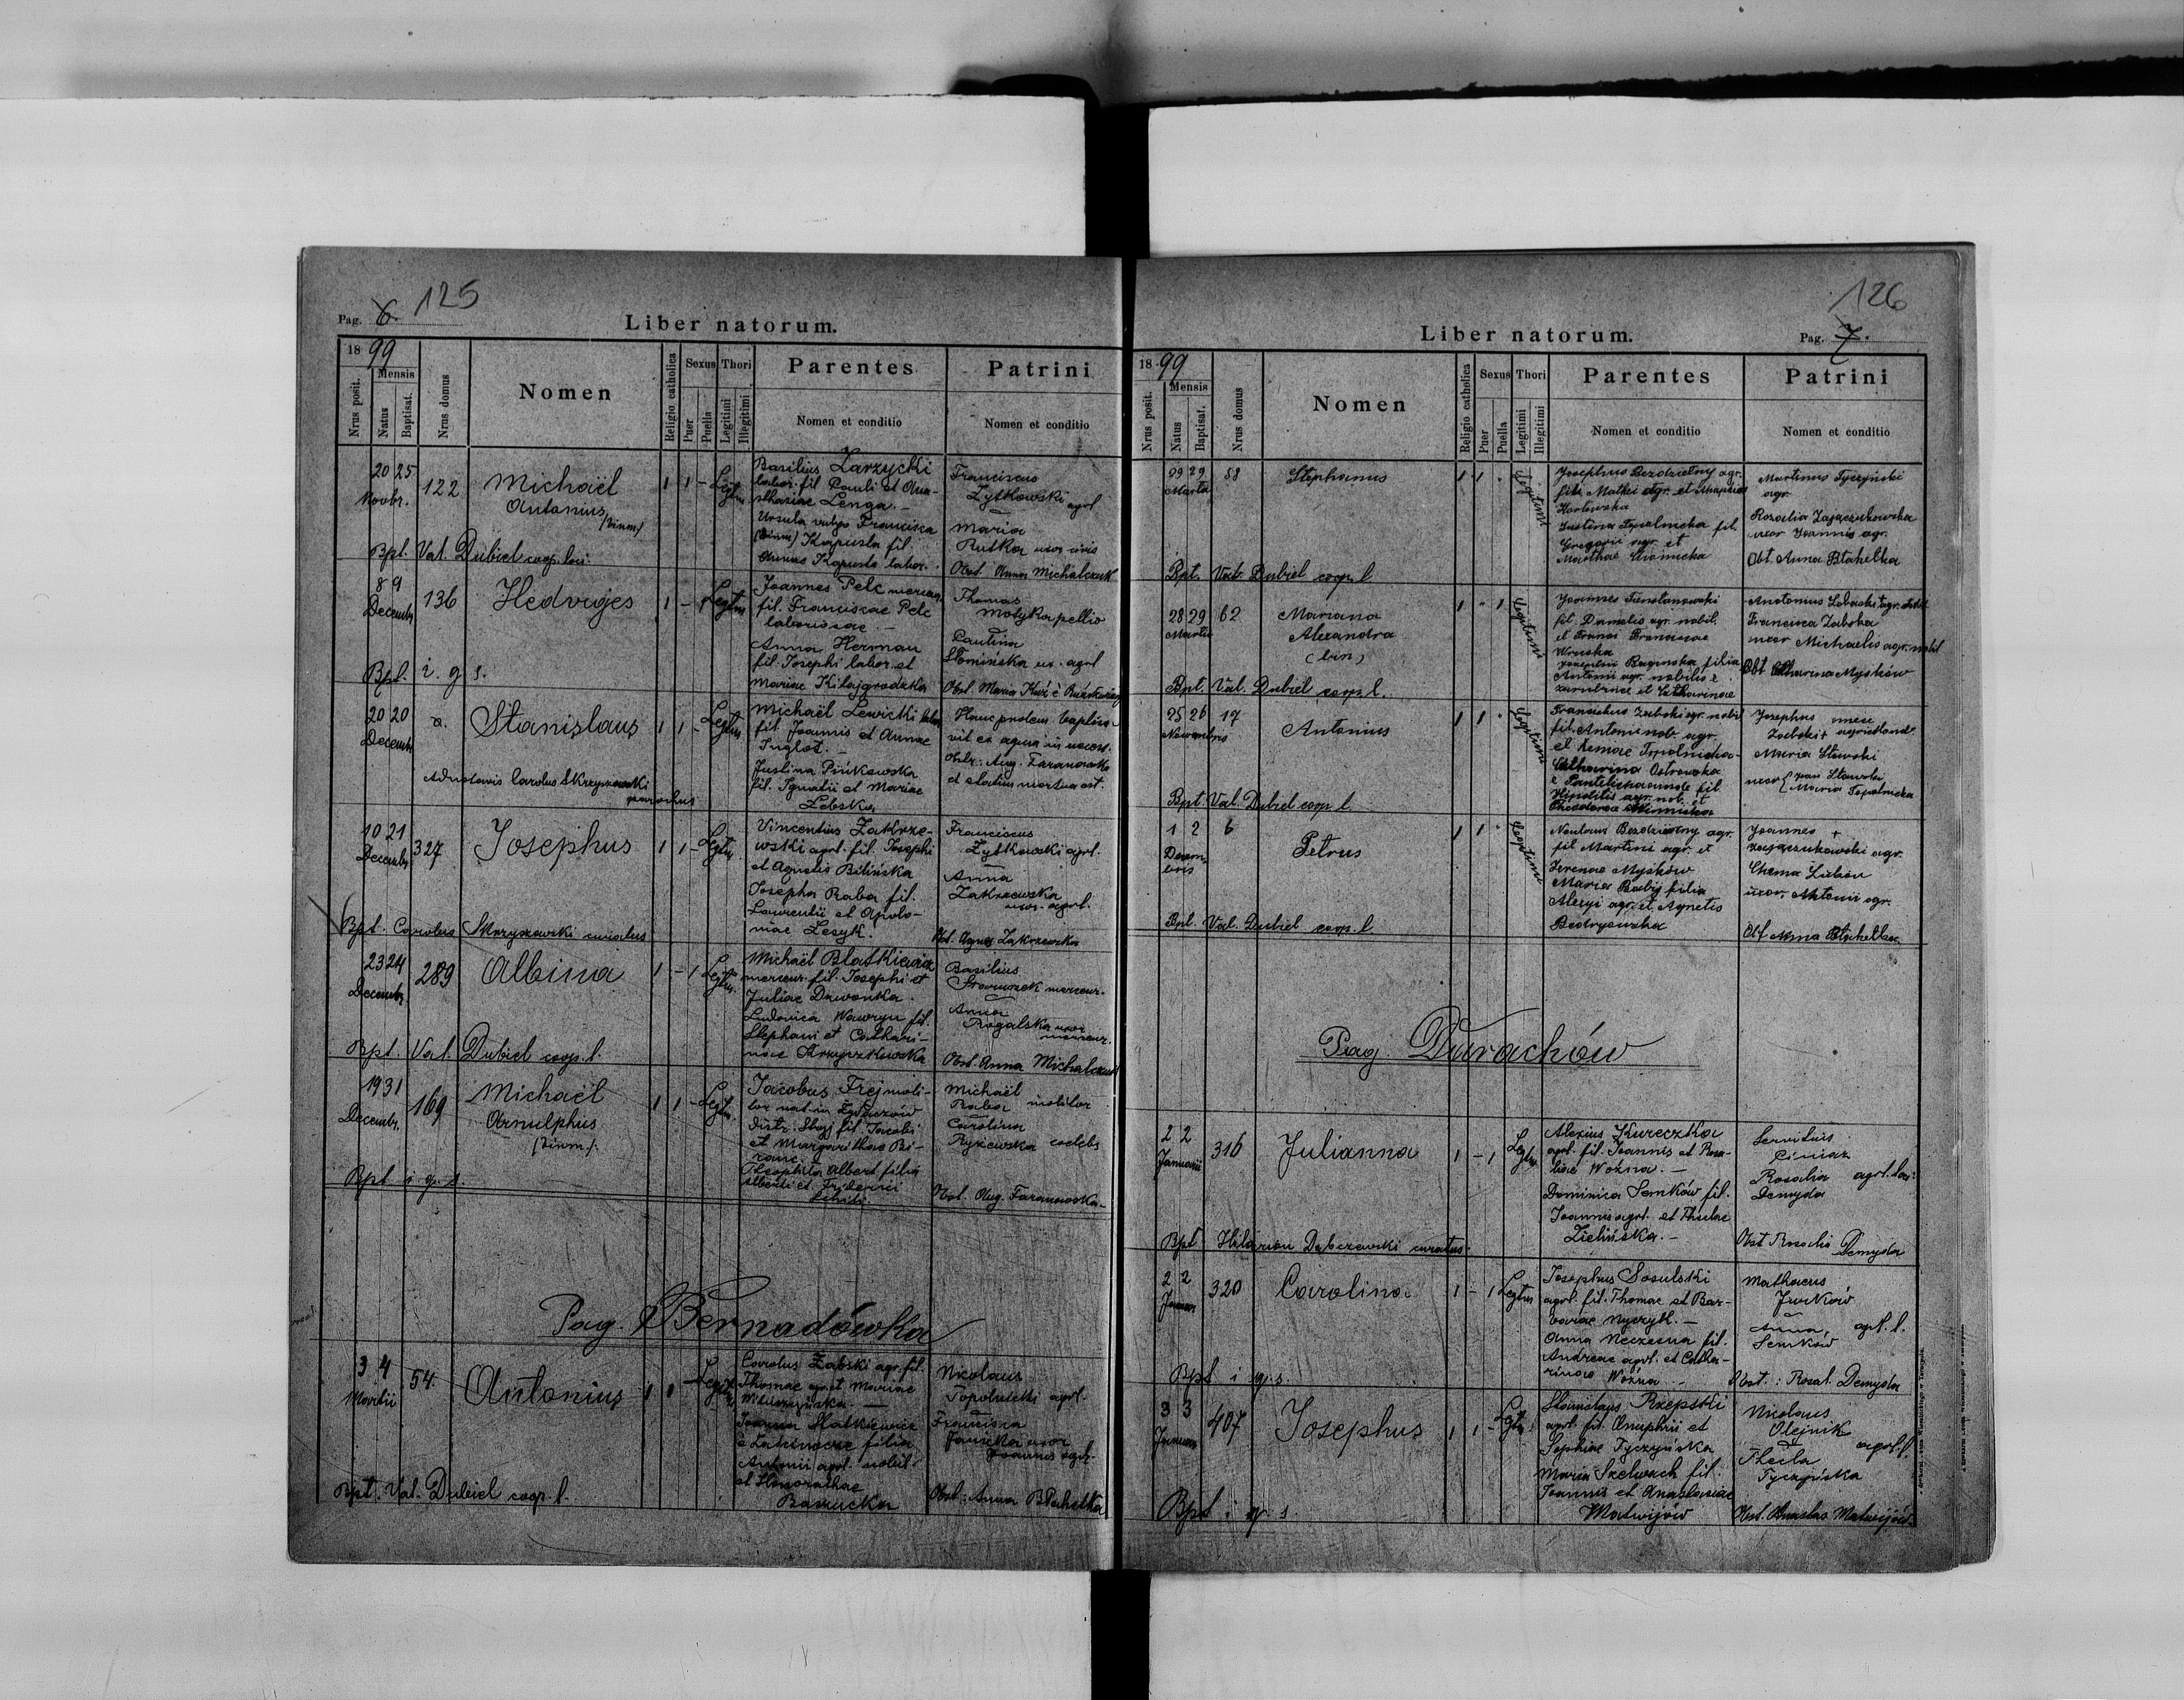 125
Pag. 6.
Liber natorum.
18 99
Nrus posit.
Mensis
Natus
Baptisat.
Nrus domus
Nomen
Religio catholica
Sexus
Puer
Puella
Thori
Legitimi
Illegitimi
Parentes
Nomen et conditio
Patrini
Nomen et conditio
20 25
Novbr.
122
Michaël
Antonius
(binm.)
1 1 - Legtm
Basilius Zarzycki
labor. fil. Pauli et Ana-
sthasiae Lenga. -
Ursula vulgo Francisca
(binm) Kapusta fil.
Annae Kapusta labor.
Franciscus
Zytkowski agrl
Maria
Rutka uxor civis
Obst. Anna Michalczuk
Bpt. Val. Dubiel coop. loci
8 9
Decembr
136
Hedviges
1 - 1 Legtm
Joannes Pelc mercen.
fil. Franciscae Pelc
laborissae. -
Anna Herman
fil. Josephi labor. et
Mariae Kitajgrodzka
Thomas
Motyka pellio
Paulina
Słomińska ux. agrl
Obst. Maria Kuź è
Bpt. i. q. s.
20 20
Decembr
Stanislaus
1 1 - Legtm
Michaël Lewicki
fil. Joannis et Annae
Inglot. -
Justina Pińkowska
fil. Ignatii et Mariae
Zebska
Hanc prolem baptisa-
vit ex aqua in necess.
Obstr. Aug. Faranowska
et statim mortua est.
Carolus Skrzyszewski
parochus
10 21
Decembr
327
Josephus
1 1 - Legtm.
Vincentius Zakrze-
wski agrl. fil. Josephi
et Agnetis Bilińska
Josepha Raba fil.
Laurentii et Apolo-
niae Lesyk.
Franciscus
Zytkowski agrl.
Anna
Zakrzewska
uxor. agrl.
Obst. Agnes Zakrzewska
Bpt. Carolus Skrzyszewski curatus
23 24
Decembr
289
Albina
1 - 1 Legtm.
Michaël Blatkiewicz
mercen. fil. Josephi et
Juliae Dzwonka.
Ludovica Wawryn fil.
Stephani et Cathari-
nae Krzyszkowska
Basilius
Staruszek mercen.
Anna
Rogalska uxor
mercen.
Obst. Anna Michalczuk
Bpt. Val. Dubiel coop. l.
19 31
Decembr.
169
Michaël
Arnulphus
(binm).
1 1 - Legtm.
Jacobus Frej moli-
tor nat. in Żydaczów
distr. Stryj fil. Jacobi
et Margarithae Bi-
ranc.
Theophila Albert filia
Alberti et Friderici
Michaël
Raba molitor
Carolina
Ryżewska coelebs
Obst. Aug. Faranowska-
Bpt i. q. s.
Pag. Bernadówka
3 4
Martii
54.
Antonius
1 1 - Legtm
Carolus Zabski agr. fil.
Thomae agr. et Mariae
Joanna Slatkiewicz
è Latinocze filia
Antonii agrl. nobil.
et Honorathae
Baszucka
Nicolaus
Topolnicki agrl.
Francisca
Janicka uxor
Joannis agr.
Obst. Anna Błahetka
Bpt. Val. Dubiel coop. l.
126
Liber natorum.
Pag. 7.
18 99
Nrus posit.
Mensis
Natus
Baptisat.
Nrus domus
Nomen
Religio catholica
Sexus
Puer
Puella
Thori
Legitimi
Illegitimi
Parentes
Nomen et conditio
Patrini
Nomen et conditio
29 29
Martii
58
Stephanus
1 1 - Legitimi
Josephus Bezdzietny agr.
filii Mathei agr. et
Kozłowska
Justina Topolnicka fil.
Gregorii agr. et
Marthae
Martinus Tyczyński
agr.
Rosalia Zajączukowska
uxor Joannis agr.
Obt. Anna Błahetka
Bpt. Val. Dubiel coop. l
28 29
Martii
62
Mariana
Alexandra
(bin)
1 - 1 Legitimi
Joannes
fil. Danielis agr. nobil.
et
filia
Antonii agr. nobilis è
et Catharinae
Antonius Zobaski agr.
Francisca Zabska
uxor Michaelis agr. nobil
Obt Catharina Myśków
Bpt. Val. Dubiel coop. l.
25 26
Novembris
17
Antonius
1 1 - Legitimi
Franciscus Zubski agr. nobil
fil. Antoni nob. agr.
et Topolnicka-
Catharina Ostrowska
fil.
Hipolitis agr. nob. et
Theodorae
Josephus
Zabski
Maria Stawski
uxor
Maria Topolnicka
Bpt. Val. Dubiel coop. l.
1 2
Decem-
bris
6
Petrus
1 1 - Legitimi
Bezdzietny agr.
fil Martini agr. et
Irenae Myśków
Maria Babij filia
Alexyi agr. et Agnetis
Joannes
Zajączukowski agr.
uxor Antonii agr.
Obt Anna Błahetka
Bpt. Val. Dubiel coop. l
Pag. Durachów
2 2
Januarii
316
Julianna
1 - 1 Legtm
Alexius Kureczka
agrl. fil. Joannis et Rosa-
liae Woźna. -
Dominica Semków fil.
Joannis agrl. et Theclae
Zielińska. -
Servilius
Cimar
Rosalia agrl. loci
Demyda
Obst Rosalia Demyda
Bpt Hilarion Dąbczewski curatus
2 2
Januar
320
Carolina
1 - 1 Legtm
Josephus Sosulski
agrl. fil. Thomae et Bar-
barae Nyczyk. -
Anna Neczesna fil.
Andreae agrl. et Catha-
rinae Woźna. -
Mathaeus
Jurków
Anna, agrl. l.
Semków
Obst.: Rosal. Demyda
Bpt i. q. s.
3 3
Januar
407
Josephus
1 1 - Legtm
Stanislaus Rzepski
agrl. fil. Onuphrii et
Sophiae Tyczyńska
Maria Szelwach fil.
Joannis et Anastasiae
Matwijów
Nicolaus
Olejnik
agrl. l.
Thecla
Tyczyńska
Obst. Anastas Matwijów.
Bpt i. q. s.